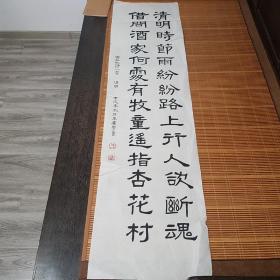 清明時節雨紛紛路上行人欲斷魂
借問酒家何處有牧童遙指杏花村